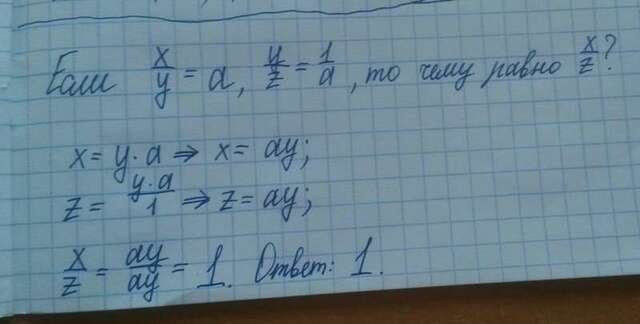 Если x/y = a, y/z = 1/a, то чему равно x/z?
x = y · a ⇒ x = ay;
z = y·a/1 ⇒ z = ay;
x/z = ay/ay = 1. Ответ: 1.